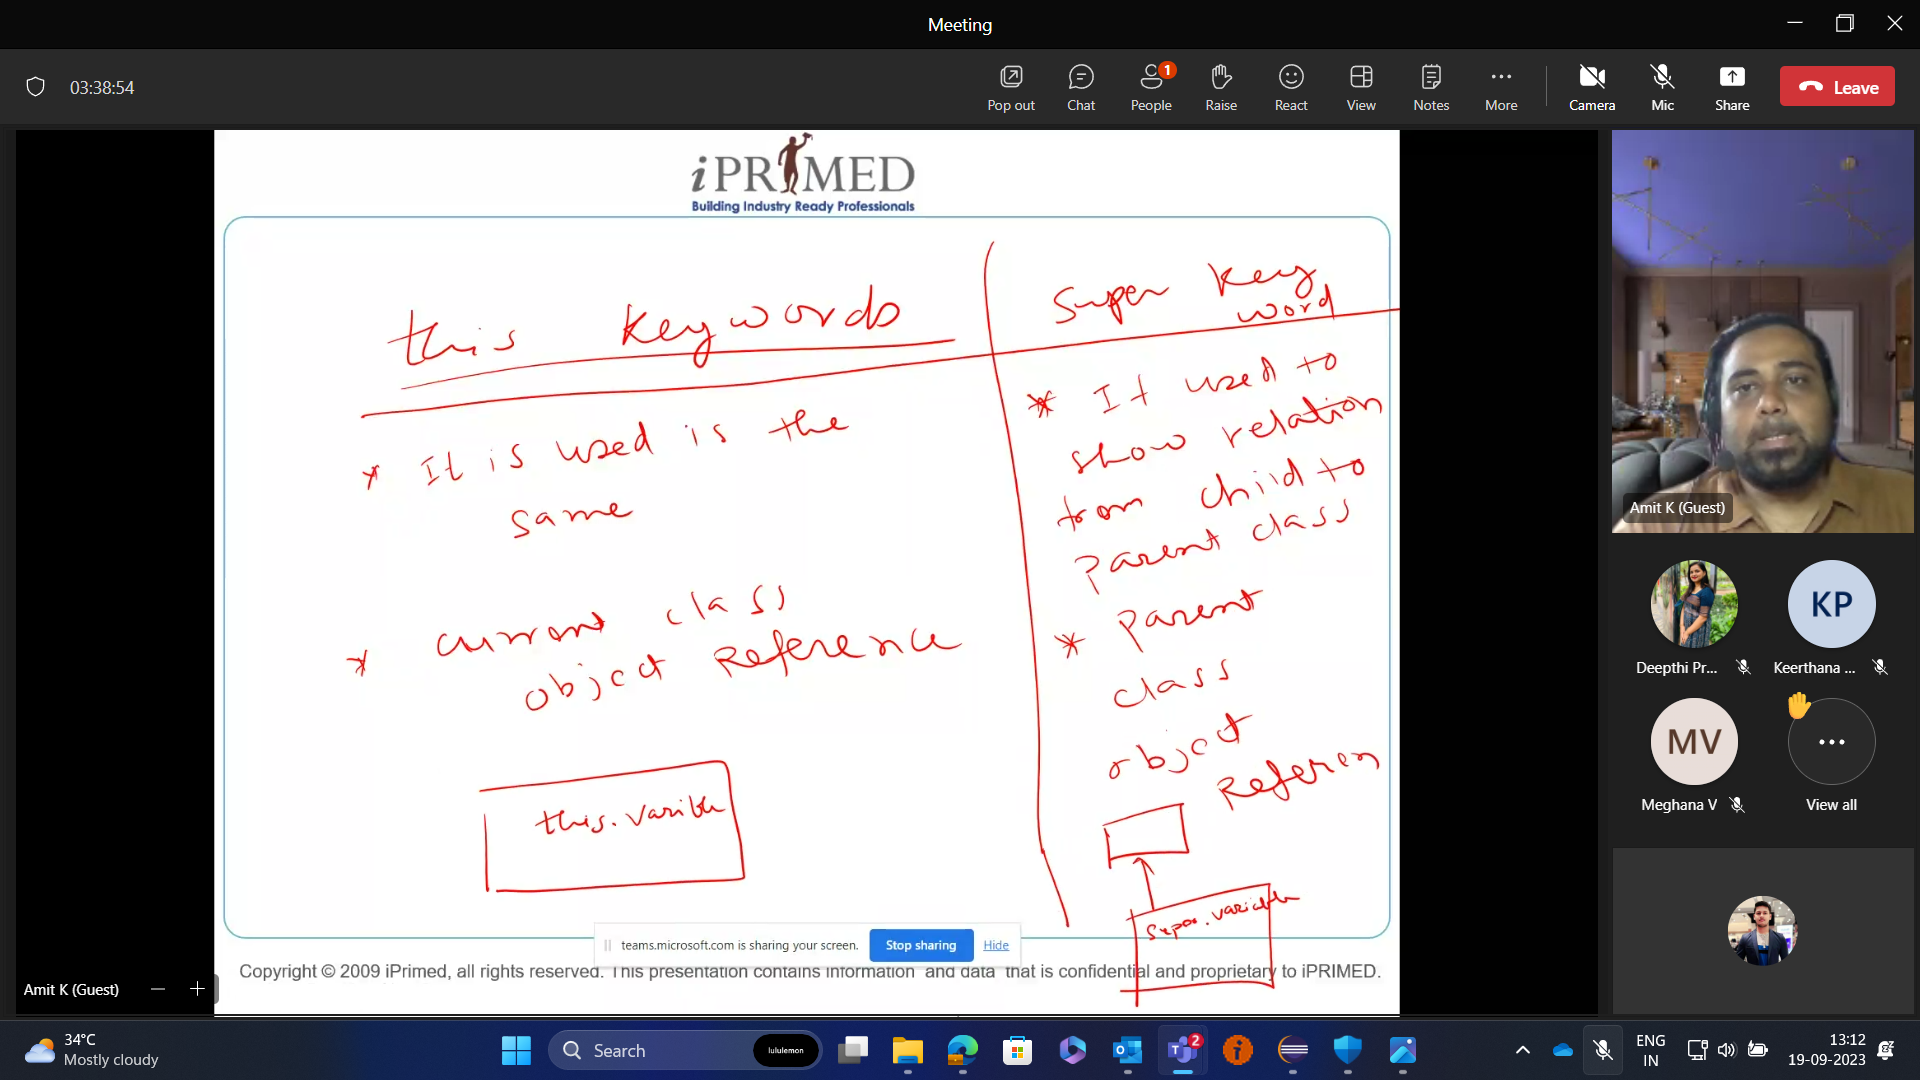 Meeting
03:38:54
Pop out
Chat
1
People
Raise
React
View
Notes
More
Camera
Mic
Share
Leave
iPRIMED
Building Industry Ready Professionals
this keywords
* It is used is the
same
* current class
object Reference
this.varible
super key
word
* It used to
show relation
from child to
parent class
* parent
class
object
Referen
super.variable
teams.microsoft.com is sharing your screen.
Stop sharing
Hide
Copyright © 2009 iPrimed, all rights reserved. This presentation contains information and data that is confidential and proprietary to iPRIMED.
Amit K (Guest)
Amit K (Guest)
KP
Deepthi Pr...
Keerthana ...
MV
Meghana V
View all
34°C
Mostly cloudy
Search
lululemon
2
ENG
IN
13:12
19-09-2023